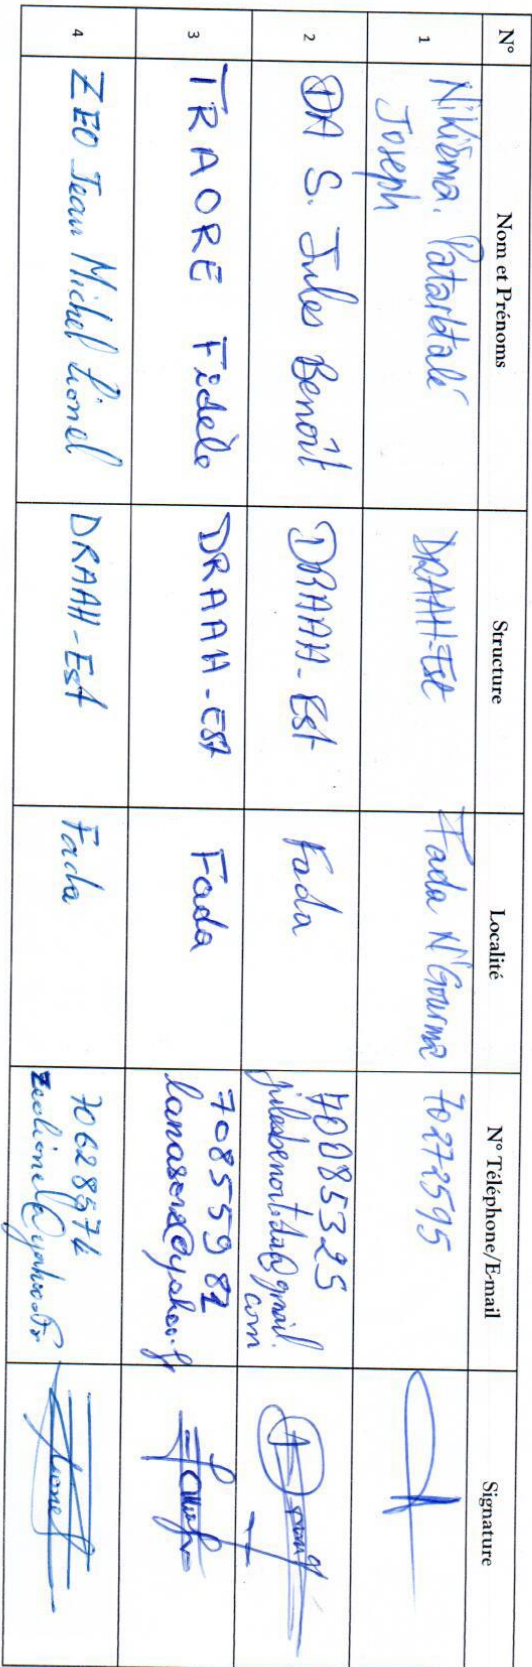 N° Nom et Prénoms Structure Localité N° Téléphone/E-mail Signature
1 Nikiéma. Patarbtalé Joseph DRAAH-Est Fada N'Gourma 70272595
2 DA S. Jules Benoît DRAAH-Est Fada 70085325 julesbenoit.da@gmail.com
3 TRAORE Fidèle DRAAH-EST Fada 70855982 lanasora@yahoo.fr
4 ZEO Jean Michel Lionel DRAAH-Est Fada 70628574 zeolionel@yahoo.fr